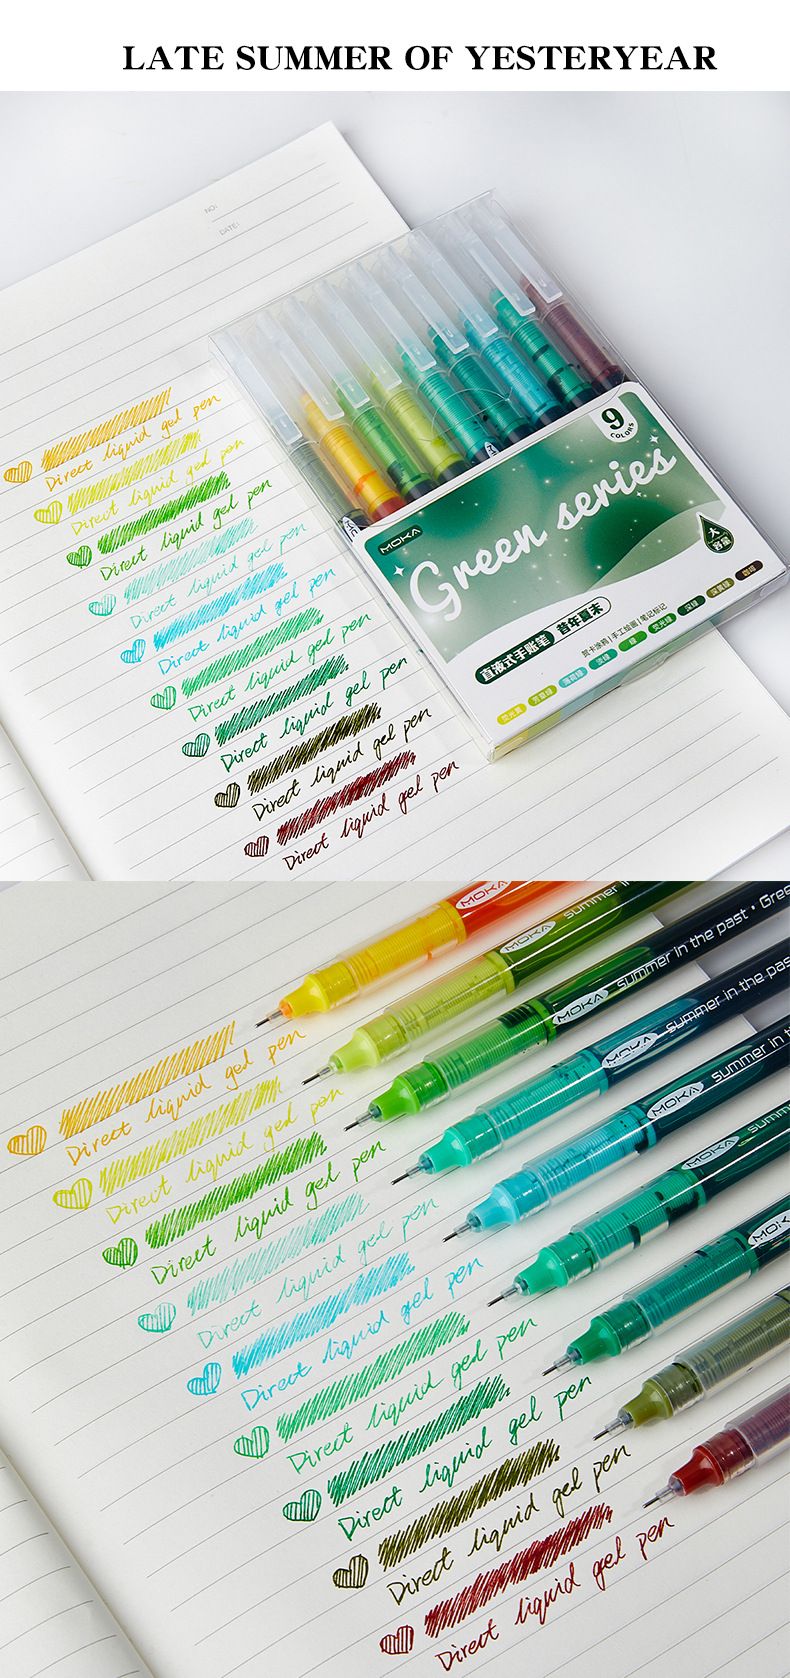 LATE SUMMER OF YESTERYEAR
NO:
DATE:
9
COLORS
MOKA
Green series
大
容量
直液式手账笔 昔年夏末
贺卡涂鸦|手工绘画|笔记标记
荧光黄 芳草绿 薄荷绿 淡绿 绿 荧光绿 深绿 深墨绿 咖啡
Direct liquid gel pen
Direct liquid gel pen
Direct liquid gel pen
Direct liquid gel pen
Direct liquid gel pen
Direct liquid gel pen
Direct liquid gel pen
Direct liquid gel pen
Direct liquid gel pen
MOKA
MOKA summer in
MOKA summer in the past • Gree
MOKA summer in the pas
MOKA summer in t
MOKA summe
MOKA
Direct liquid gel pen
Direct liquid gel pen
Direct liquid gel pen
Direct liquid gel pen
Direct liquid gel pen
Direct liquid gel pen
Direct liquid gel pen
Direct liquid gel pen
Direct liquid gel pen